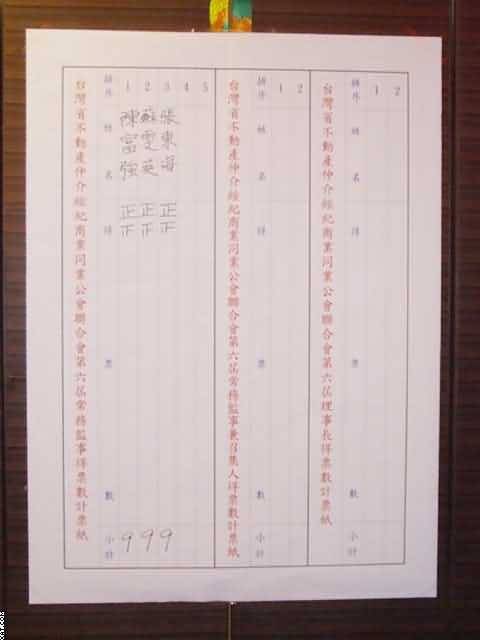 台灣省不動產仲介經紀商業同業公會聯合會第六屆常務監事得票數計票紙
排序 姓名 得票數 小計
1 陳富強 正正 9
2 蘇雯英 正正 9
3 張東海 正正 9
4
5
台灣省不動產仲介經紀商業同業公會聯合會第六屆常務監事兼召集人得票數計票紙
排序 姓名 得票數 小計
1
2
台灣省不動產仲介經紀商業同業公會聯合會第六屆理事長得票數計票紙
排序 姓名 得票數 小計
1
2